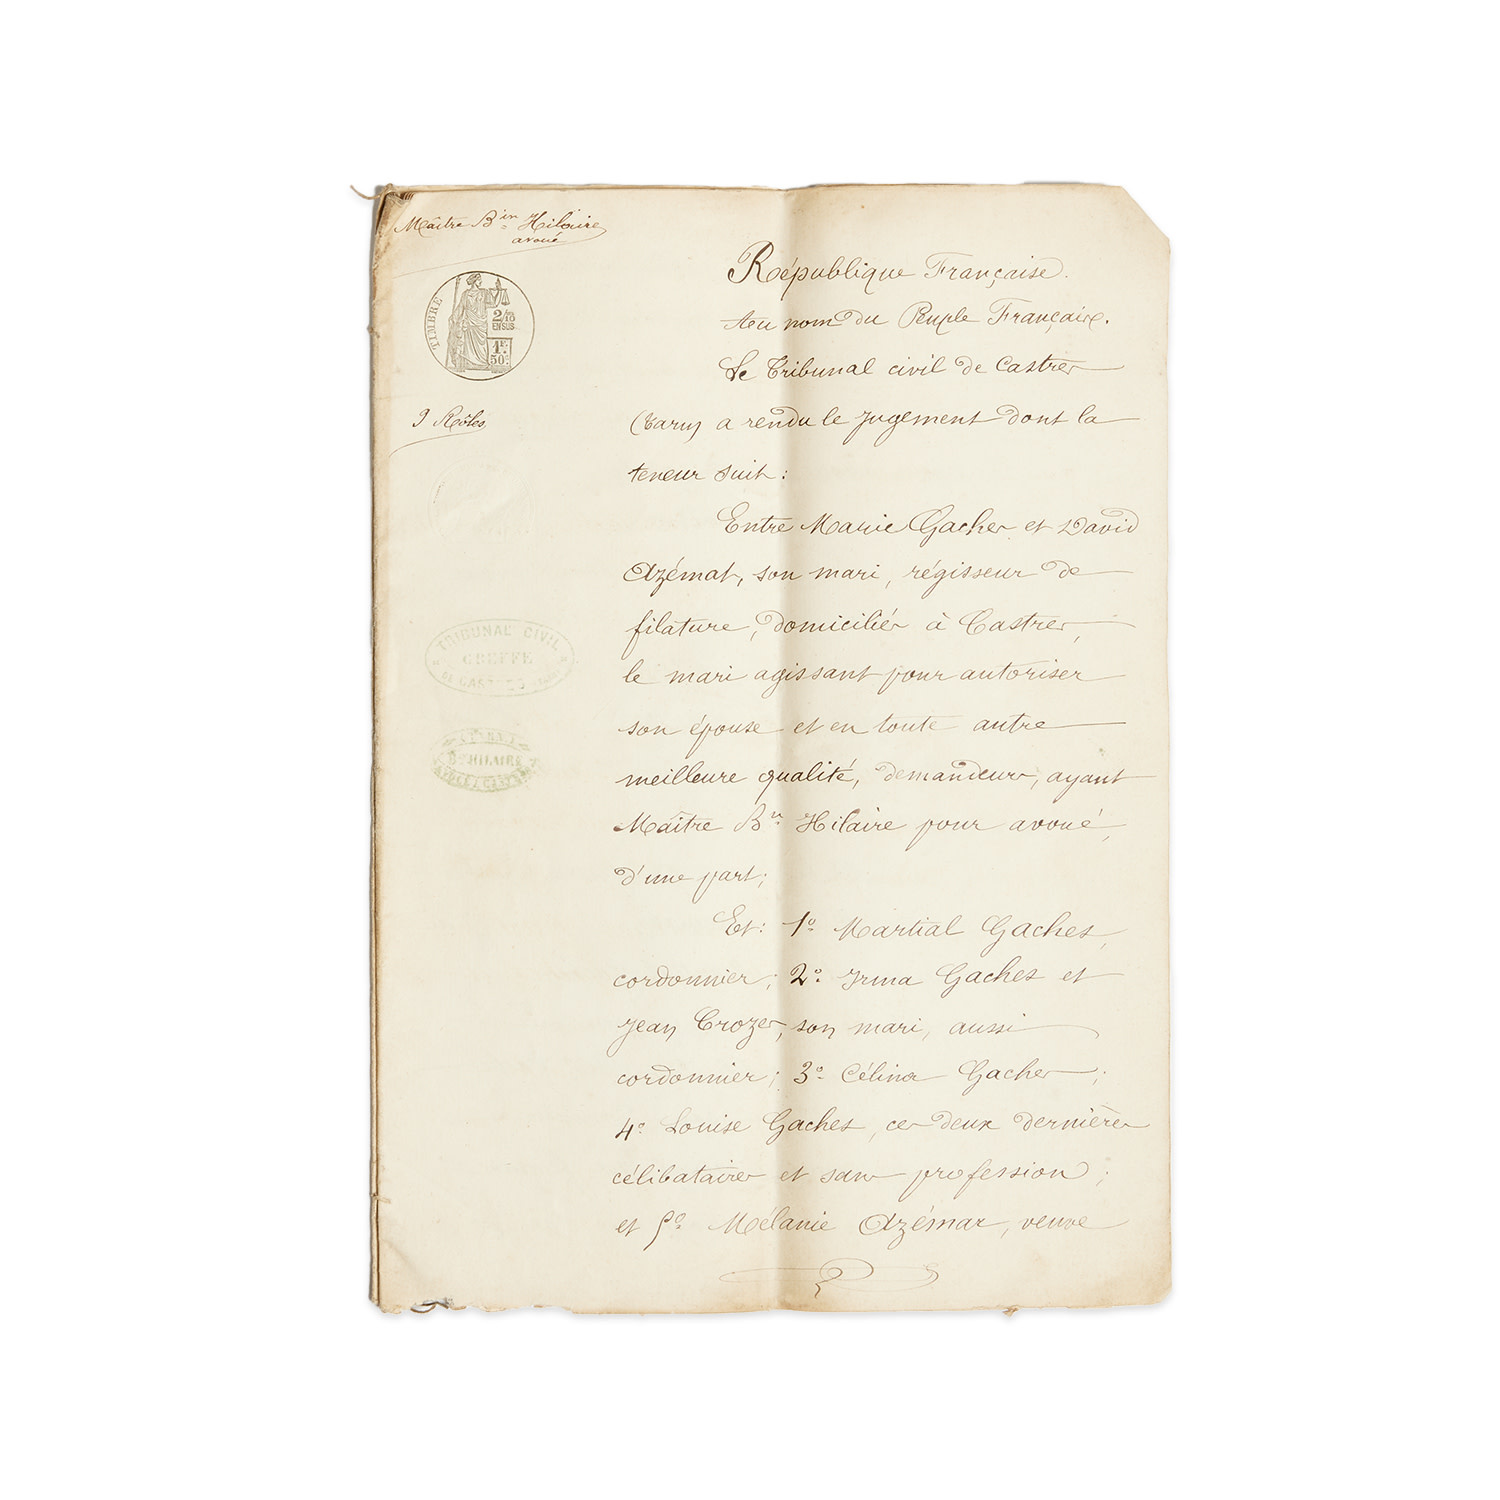 Maître Bin Hilaire
avoué
TIMBRE
2/10
EN SUS
1F.
50c.
9 Rôles
TRIBUNAL CIVIL
GREFFE
DE CASTRES
Bin HILAIRE
République Française.
Au nom du Peuple Français.
Le Tribunal civil de Castres
(Tarn) a rendu le jugement dont la
teneur suit :
Entre Marie Gaches et David
Azémat, son mari, régisseur de
filature, domiciliés à Castres,
le mari agissant pour autoriser
son épouse et en toute autre
meilleure qualité, demandeurs, ayant
Maître Bin Hilaire pour avoué,
d'une part ;
Et : 1º Martial Gaches,
cordonnier ; 2º Irma Gaches et
Jean Crozes, son mari, aussi
cordonnier ; 3º Célina Gaches ;
4º Louise Gaches, ces deux dernières
célibataires et sans profession ;
et 5º Mélanie Azémar, veuve